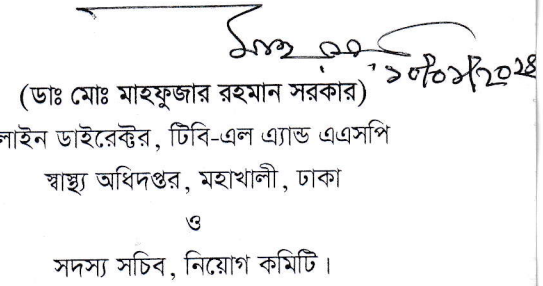 (ডাঃ মোঃ মাহফুজার রহমান সরকার)
লাইন ডাইরেক্টর, টিবি-এল এ্যান্ড এএসপি
স্বাস্থ্য অধিদপ্তর, মহাখালী, ঢাকা
ও
সদস্য সচিব, নিয়োগ কমিটি।